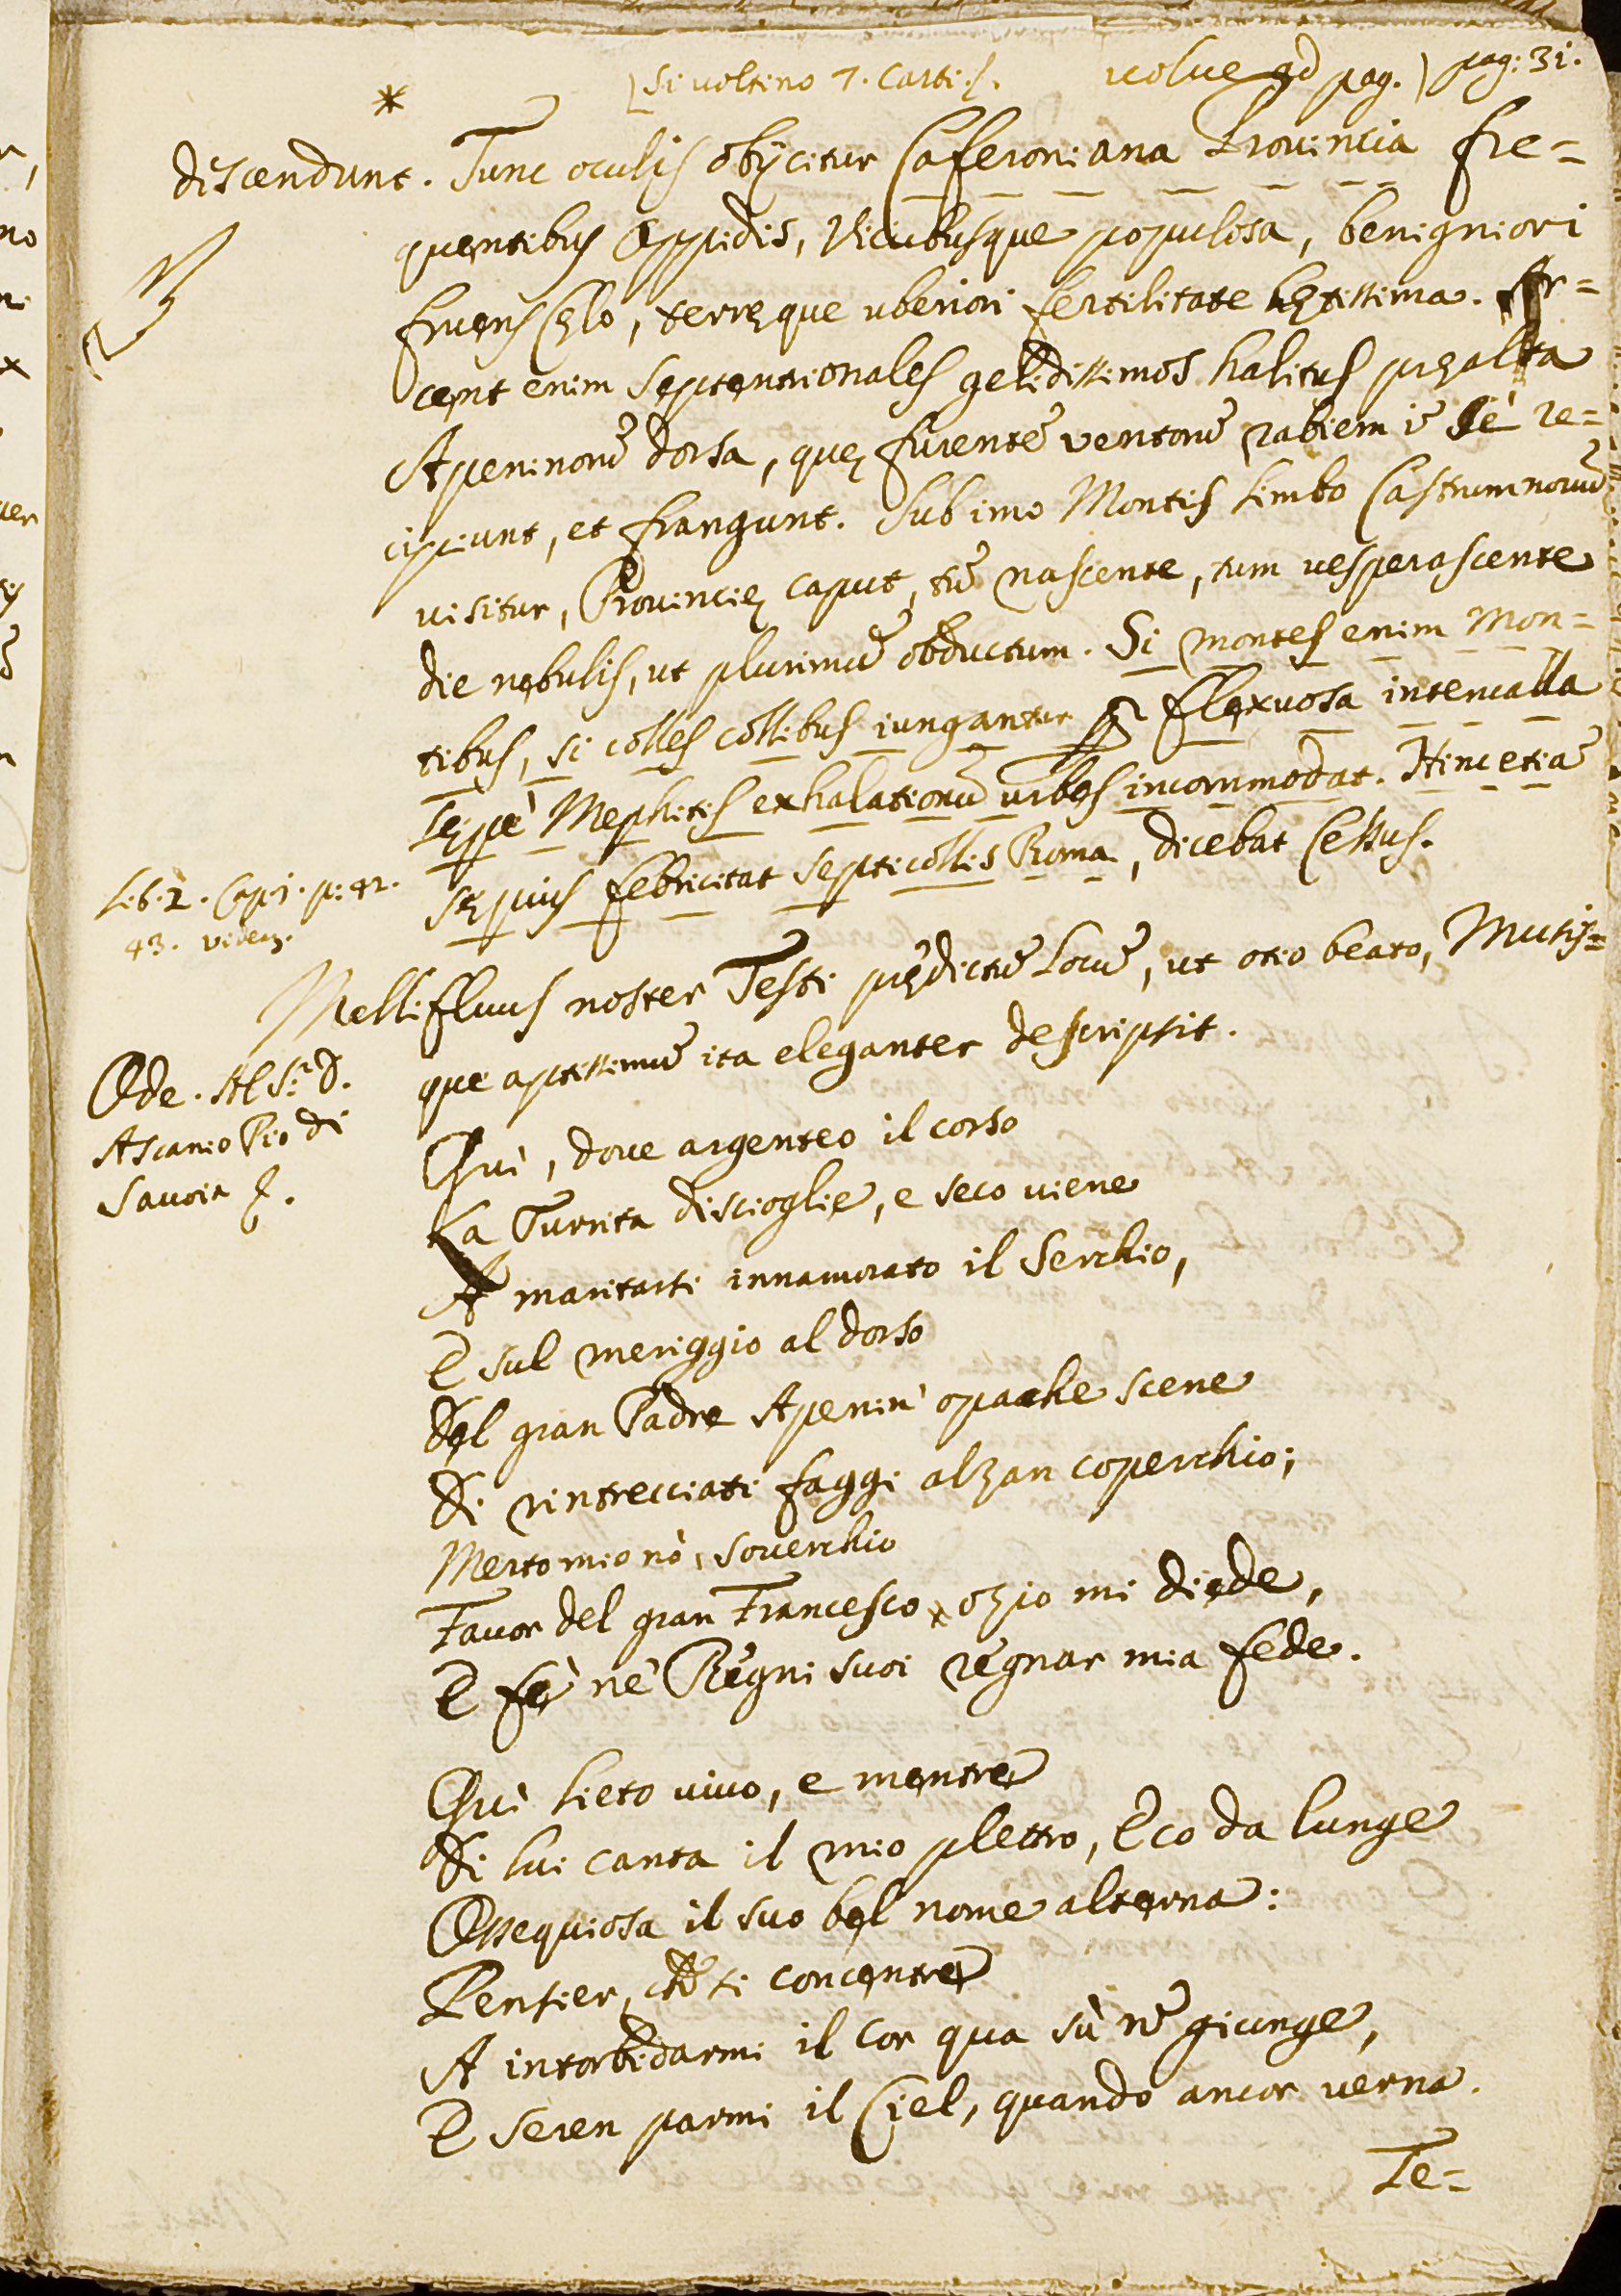 *
(Si voltino 7. Carti.
volue ad pag.) pag: 31.
descendunt. Tunc oculis obÿcitur Caferoniana Prouincia fre=
quentibus Oppidis, Vicubusque populosa, benigniori
fruens Cęlo, terręque uberiori fertilitate lętissima. Ar=
cent enim Septentrionales gelidissimos halitus pręalta
Apeninorũ dorsa, quę furentẽ ventorũ rabiem ĩ sè re=
cipiunt, et frangunt. Sub imo Montis Limbo Castrumnouũ
visitur, Prouincię caput, tũ nascente, tum vesperascente
die nebulis, ut plurimũ obductum. Si montes enim Mon=
tibus, si colles collibus iungantur ꝑ flexuosa interualla
sępè Mephitis exhalationũ urbes incommodat. Hinc etiã
sępius febricitat septicollis Roma, dicebat Celsus.
Lib. 2. Cap: 1. p: 42.
43. videꝫ.
Mellifluus noster Testi prędictũ Locũ, ut otio beato, Musis=
que aptissimũ ita eleganter descripsit.
Ode. Al S.r D.
Ascanio Pio di
Savoia
Quì, dove argenteo il corso
La Turrita discioglie, e seco viene
A maritarsi innamorato il Serchio,
E sul meriggio al dorso
Del gran Padre Apenin' opache scene
Di rintrecciati faggi alzan coperchio;
Merto mio nò, soverchio
Favor del gran Francesco ozio mi diede,
E fè ne' Regni suoi regnar mia fede.
Quì lieto vivo, e mentre
Di lui canta il mio plettro, Eco da lunge
Ossequiosa il suo bel nome alterna:
Pensier, chè si concentre
A intorbidarmi il cor qua sù nõ giunge,
E seren parmi il Ciel, quando ancor verna.
Te=